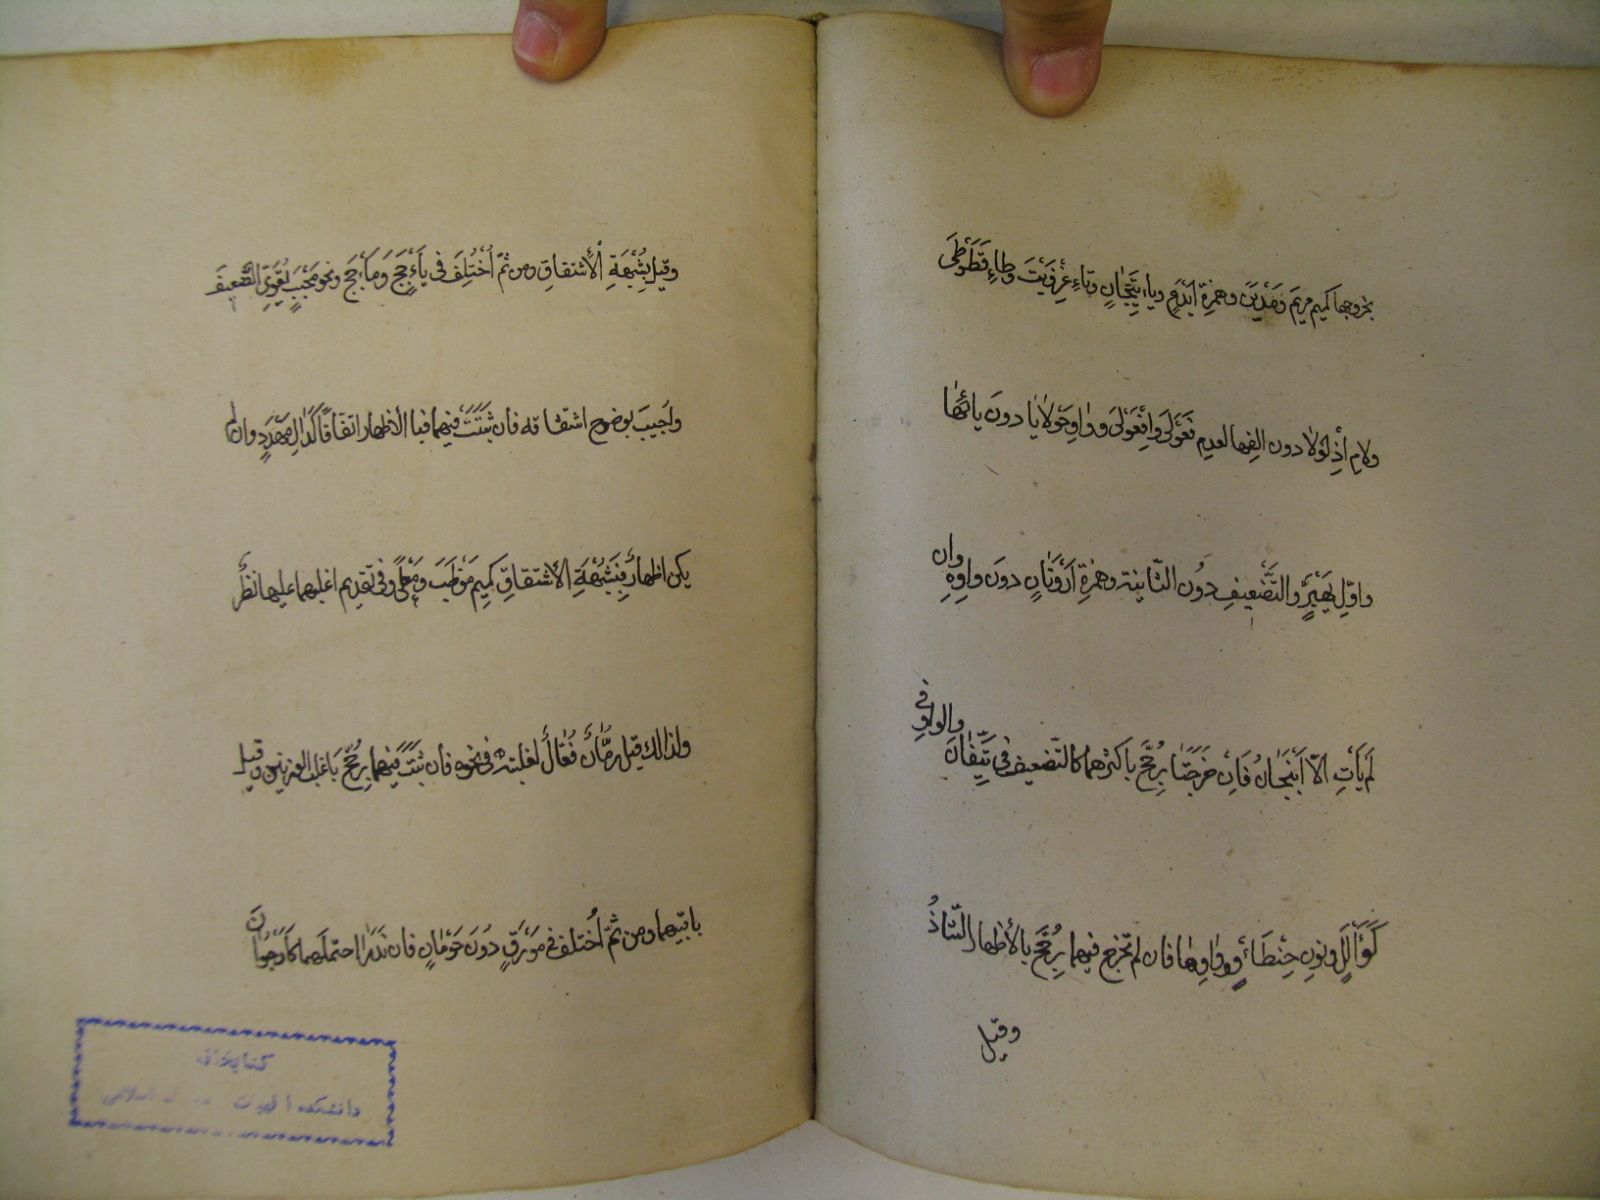 بخروجها كميم مريم ومدين وهمزة ايدع وياء تيحان وتاء عزويت وطاء قطوطى
ولام أذلولا دون الفها لعدم فعولى وافعولى وواو حولايا دون يائها
واول يهير والتضعيف دون الثانية وهمزة ارونان دون واوه وان
لم يأت الا انبجان فان خرجتا رجح باكثرهما كالتضعيف في تيفان والواو في
كوألل ونون حنطأو وواوها فان لم تخرج فيهما رجح بالأظهار الشاذ
وقيل
وقيل بشبهة الأشتقاق ومن ثم أختلف في يأجج ومأجج ونحو محبب يقوى الضعيف
واجيب بوضوح اشتقاقه فان ثبتت فيهما فبالأظهار اتفاقا كدال مهدد وان لم
يكن اظهار فبشبهة الاشتقاق كميم موظب ومعلى وفي تقديم اغلبهما عليها نظر
ولذلك قيل رمان فعال لغلبته في نحوه فان ثبتت فيهما رجح باغلب الوزنين وقيل
باقيسهما ومن ثم أختلف في مورق دون حومان فان ندرا احتملهما كأرجوان
كتابخانه
دانشكده الهيات و معارف اسلامى